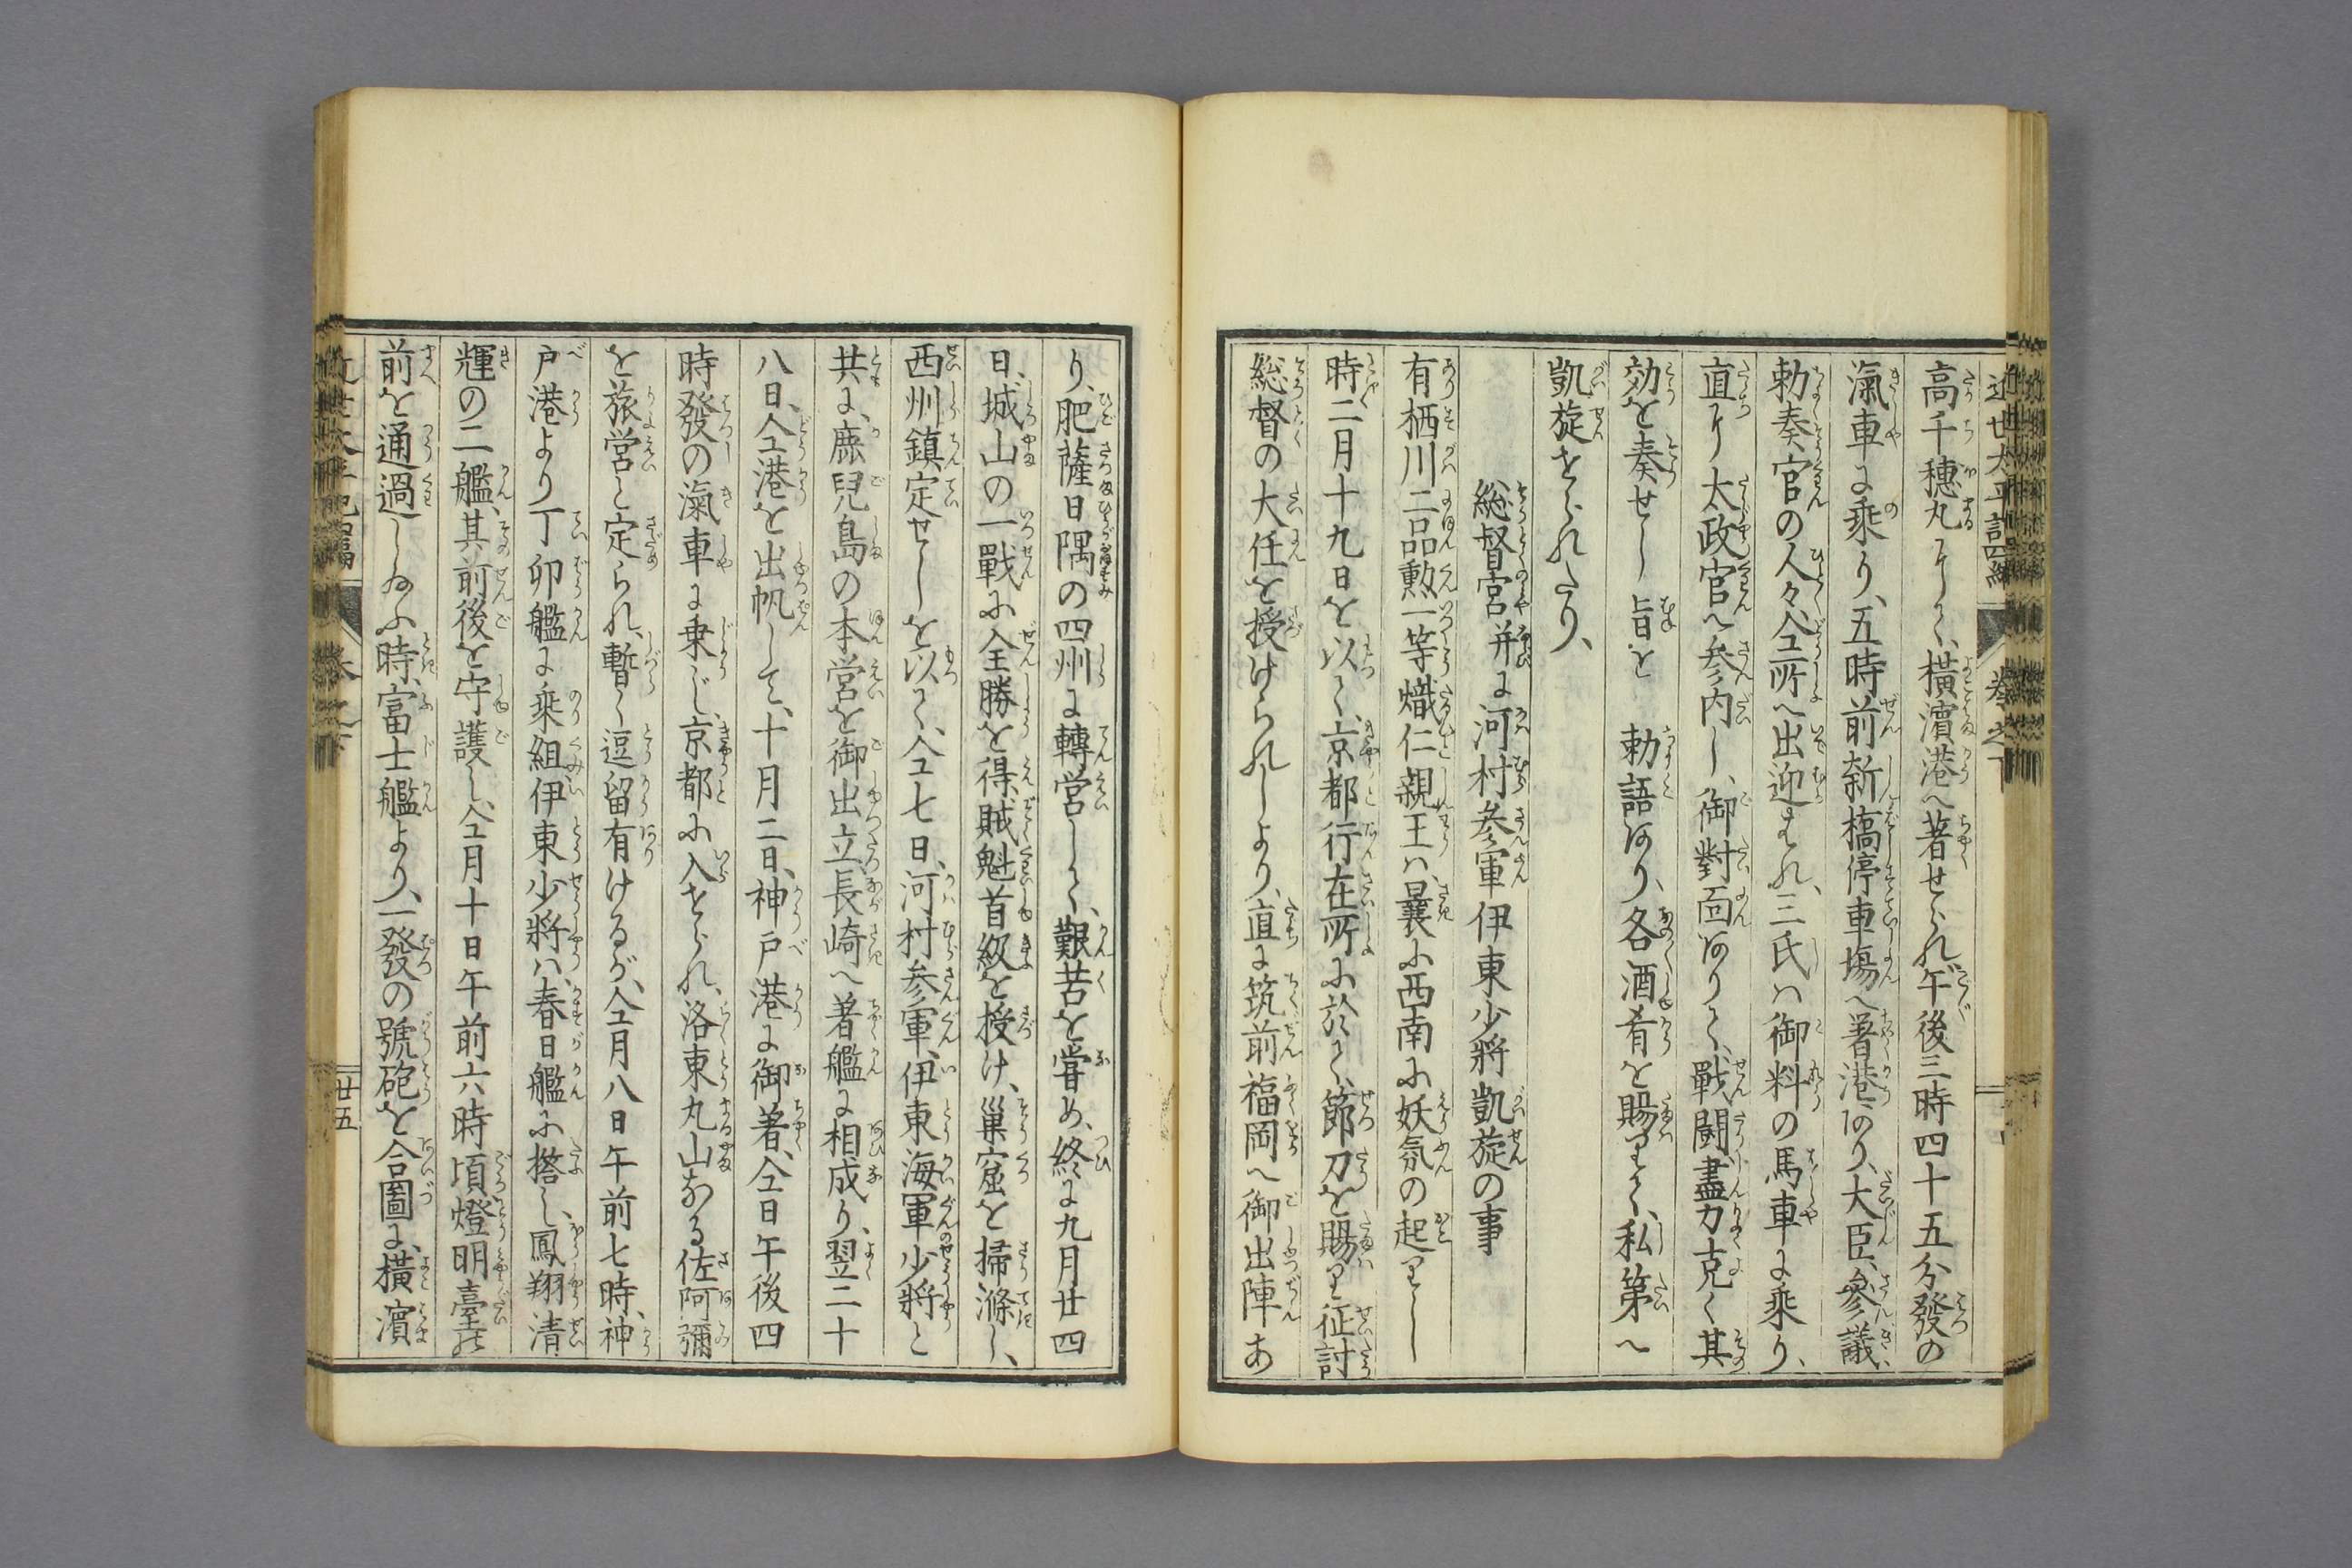 近世太平記四編 巻之下
高千穂丸にて、横濱港へ著せられ午後三時四十五分發の
滊車に乘り、五時前新橋停車塲へ著港あり、大臣、參議、
勅奏官の人々仝所へ出迎まれ、三氏ハ御料の馬車に乘り、
直に太政官へ参内し、御對面ありて、戰鬪盡力克く其
効を奏せし旨を 勅語あり、各酒肴を賜りて、私第へ
凱旋せられたり、
総督宮并に河村参軍伊東少將凱旋の事
有栖川二品勲一等熾仁親王ハ曩に西南に妖氛の起りし
時二月十九日を以て、京都行在所に於て、節刀を賜り征討
総督の大任を授けられしより、直に筑前福岡へ御出陣あ
り、肥薩日隅の四州に轉営して、艱苦を甞め、終に九月廿四
日、城山の一戰に全勝を得、賊魁首級を授け、巢窟を掃滌し、
西州鎮定せしを以て、仝七日、河村参軍、伊東海軍少將と
共に、鹿兒島の本営を御出立長崎へ著艦に相成り、翌二十
八日、仝港を出帆して、十月二日、神戸港に御著、仝日午後四
時發の滊車に乗じ、京都に入せられ、洛東丸山なる佐阿彌
を旅営と定られ、暫く逗留有けるが、仝月八日午前七時、神
戸港より丁卯艦に乗組伊東少將ハ、春日艦に搭し、鳳翔清
輝の二艦、其前後を守護し、仝月十日午前六時頃燈明臺の
前を通過し給ふ時、富士艦より、一發の號砲を合圖に、横濱
近世太平記四編 巻之下 廿五